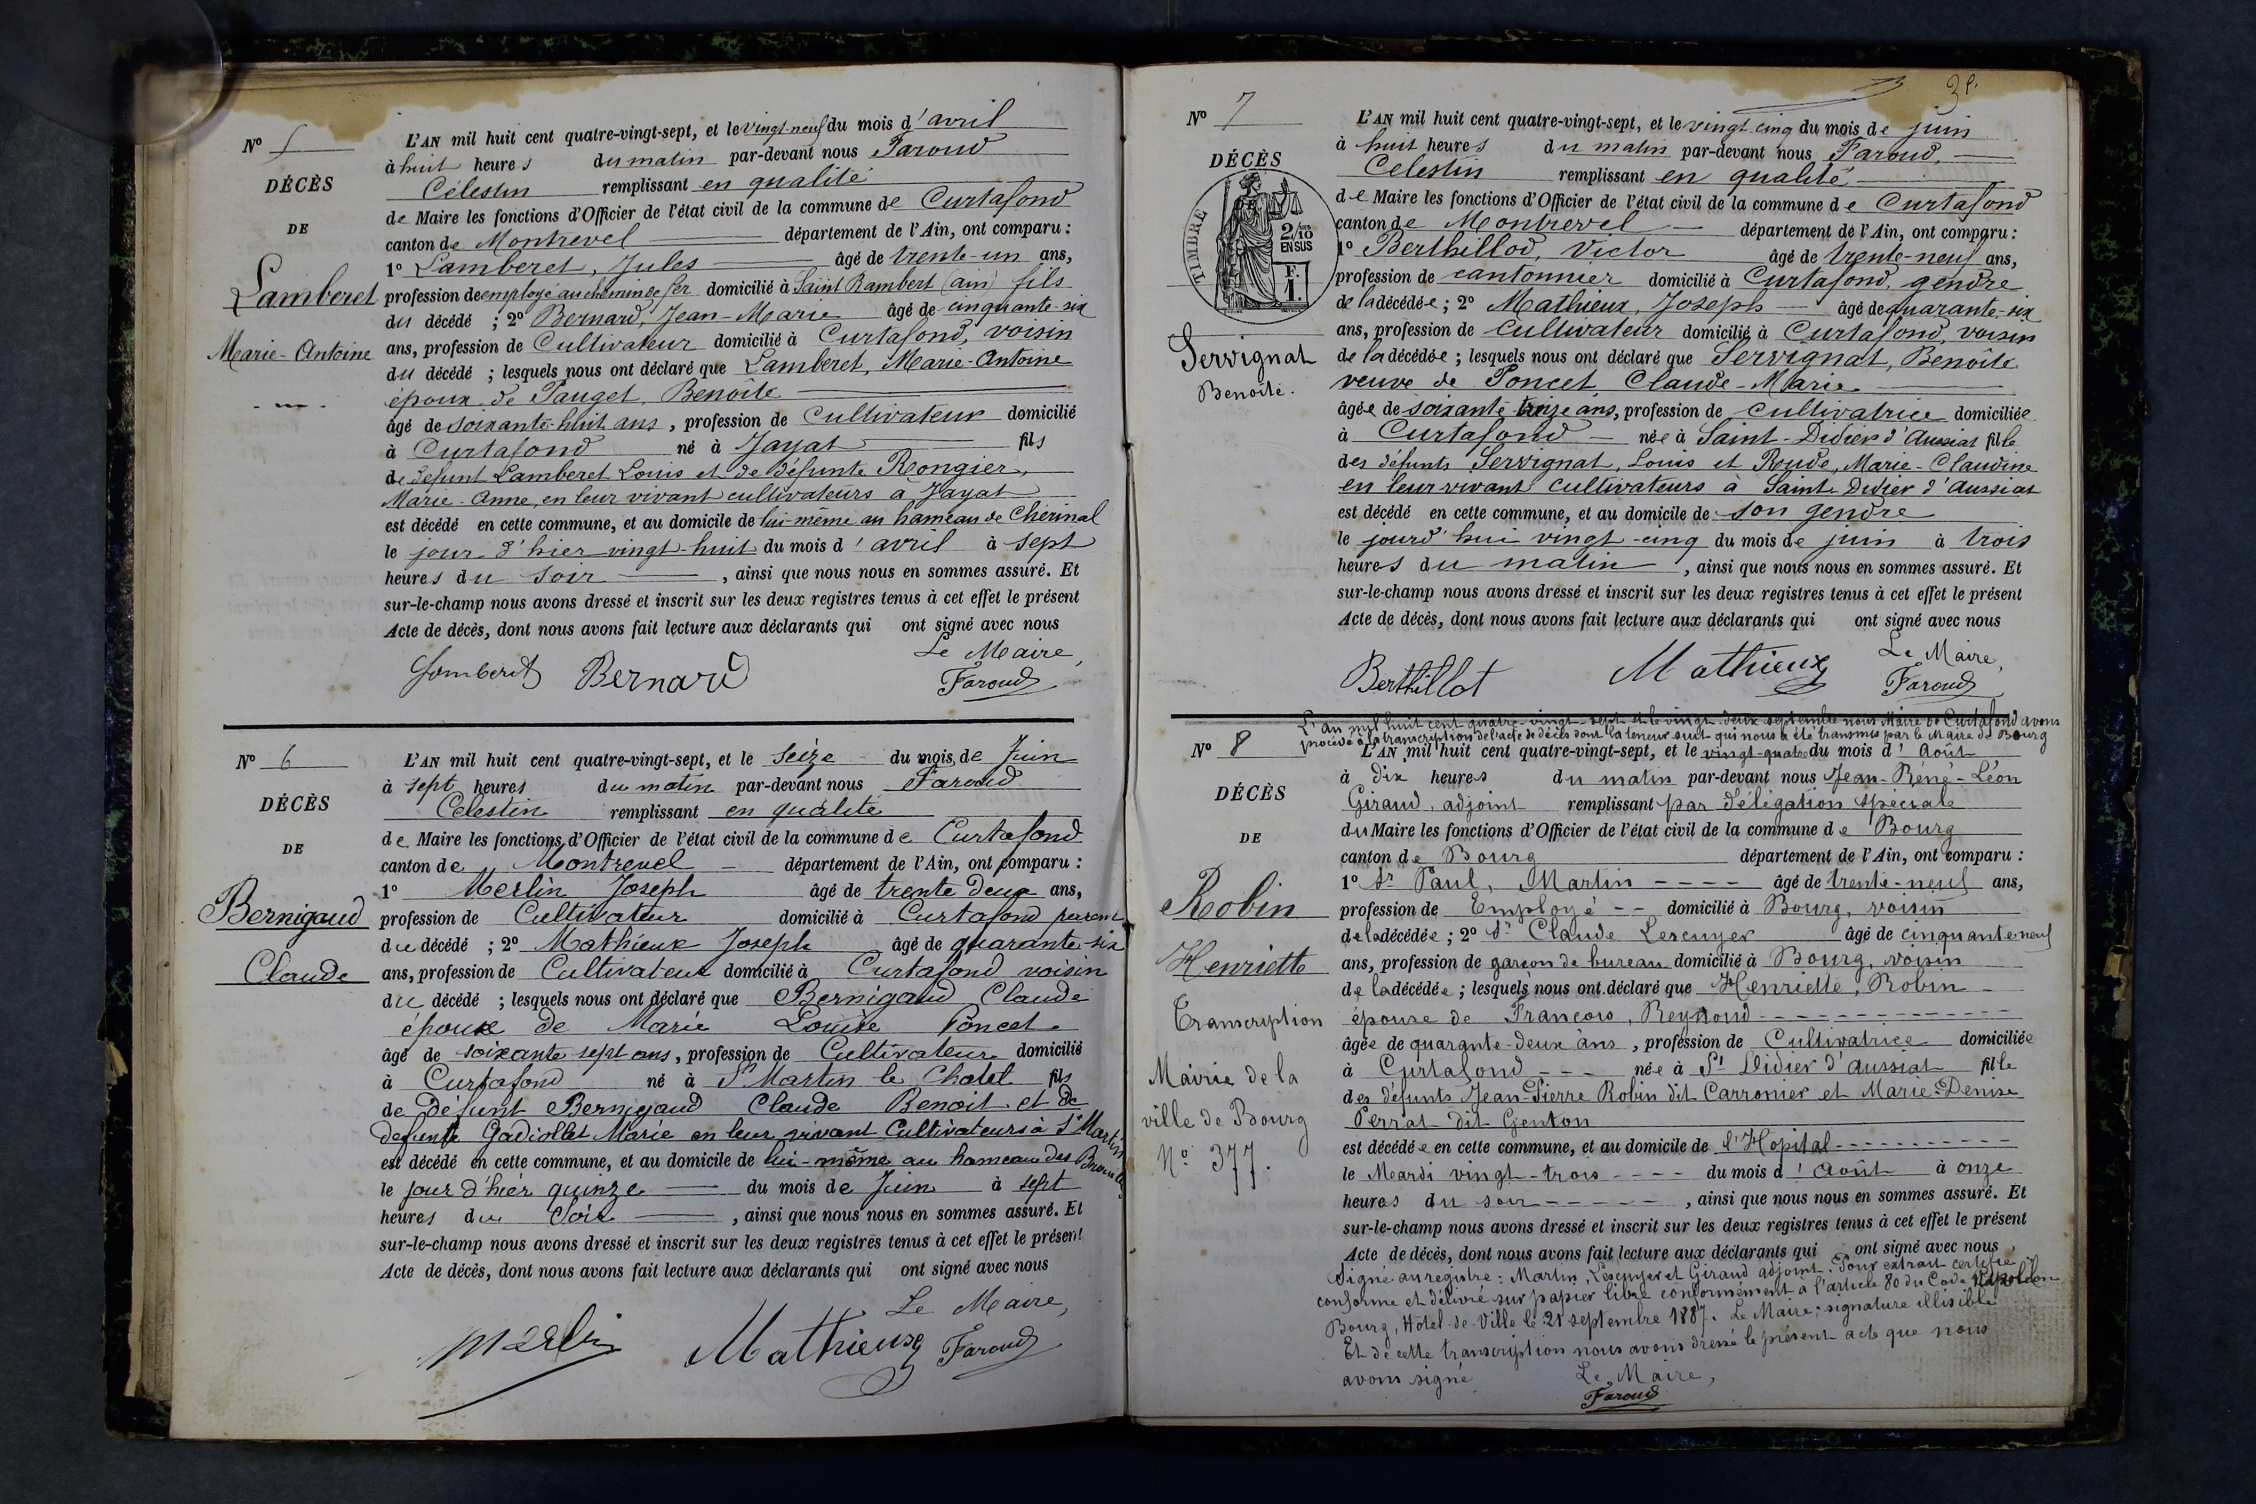 Nº 5
DÉCÈS
DE
Lamberet
Marie-Antoine
L'AN mil huit cent quatre-vingt-sept, et le vingt-neuf du mois d'avril
à huit heures du matin par-devant nous Faroud
Célestin remplissant en qualité
de Maire les fonctions d'Officier de l'état civil de la commune de Curtafond
canton de Montrevel département de l'Ain, ont comparu :
1º Lamberet, Jules âgé de trente-un ans,
profession de employé au chemin de fer domicilié à Saint Rambert (ain) fils
du décédé ; 2º Bernard, Jean-Marie âgé de cinquante-six
ans, profession de Cultivateur domicilié à Curtafond, voisin
du décédé ; lesquels nous ont déclaré que Lamberet, Marie-Antoine
époux de Pauget, Benoîte
âgé de soixante-huit ans, profession de Cultivateur domicilié
à Curtafond né à Jayat fils
de défunt Lamberet Louis et de défunte Rongier,
Marie-Anne, en leur vivant cultivateurs à Jayat
est décédé en cette commune, et au domicile de lui-même au hameau de Cherinal
le jour d'hier vingt-huit du mois d'avril à sept
heures du soir, ainsi que nous nous en sommes assuré. Et
sur-le-champ nous avons dressé et inscrit sur les deux registres tenus à cet effet le présent
Acte de décès, dont nous avons fait lecture aux déclarants qui ont signé avec nous
Le Maire,
Lamberet Bernard Faroud
Nº 6
DÉCÈS
DE
Bernigaud
Claude
L'AN mil huit cent quatre-vingt-sept, et le seize du mois de Juin
à sept heures du matin par-devant nous Faroud
Celestin remplissant en qualité
de Maire les fonctions d'Officier de l'état civil de la commune de Curtafond
canton de Montrevel département de l'Ain, ont comparu :
1º Merlin Joseph âgé de trente deux ans,
profession de Cultivateur domicilié à Curtafond parent
du décédé ; 2º Mathieux Joseph âgé de quarante-six
ans, profession de Cultivateur domicilié à Curtafond voisin
du décédé ; lesquels nous ont déclaré que Bernigaud Claude
époux de Marie Louise Poncet
âgé de soixante sept ans, profession de Cultivateur domicilié
à Curtafond né à St Martin le Chatel fils
de Défunt Bernigaud Claude Benoit et de
defunte Gadiollet Marie en leur vivant Cultivateurs à St Martin
est décédé en cette commune, et au domicile de lui-même au hameau des
le jour d'hier quinze du mois de Juin à sept
heures du Soir, ainsi que nous nous en sommes assuré. Et
sur-le-champ nous avons dressé et inscrit sur les deux registres tenus à cet effet le présent
Acte de décès, dont nous avons fait lecture aux déclarants qui ont signé avec nous
Le Maire,
Merlin Mathieux Faroud
Nº 7
DÉCÈS
TIMBRE
2/10
EN SUS
F.
1.
Servignat
Benoîte.
L'AN mil huit cent quatre-vingt-sept, et le vingt cinq du mois de juin
à huit heures du matin par-devant nous Faroud,
Celestin remplissant en qualité
de Maire les fonctions d'Officier de l'état civil de la commune de Curtafond
canton de Montrevel département de l'Ain, ont comparu :
1º Berthillod, Victor âgé de trente-neuf ans,
profession de cantonnier domicilié à Curtafond, gendre
de la décédée ; 2º Mathieux, Joseph âgé de quarante-six
ans, profession de cultivateur domicilié à Curtafond, voisin
de la décédée ; lesquels nous ont déclaré que Servignat, Benoîte
veuve de Poncet Claude-Marie
âgée de soixante-treize ans, profession de cultivatrice domiciliée
à Curtafond née à Saint-Didier d'Aussiat fille
des défunts Servignat, Louis et Roude, Marie-Claudine
en leur vivant cultivateurs à Saint-Didier d'Aussiat
est décédé en cette commune, et au domicile de son gendre
le jourd'hui vingt-cinq du mois de juin à trois
heures du matin, ainsi que nous nous en sommes assuré. Et
sur-le-champ nous avons dressé et inscrit sur les deux registres tenus à cet effet le présent
Acte de décès, dont nous avons fait lecture aux déclarants qui ont signé avec nous
Le Maire,
Berthillot Mathieux Faroud
L'An mil huit cent quatre-vingt-sept et le vingt-deux septembre nous Maire de Curtafond avons
procédé à la transcription de l'acte de décès dont la teneur suit qui nous a été transmis par le Maire de Bourg
Nº 8
DÉCÈS
DE
Robin
Henriette
Transcription
Mairie de la
ville de Bourg
Nº 377.
L'AN mil huit cent quatre-vingt-sept, et le vingt-quatre du mois d'Août
à dix heures du matin par-devant nous Jean-Réné-Léon
Giraud, adjoint remplissant par délégation spéciale
du Maire les fonctions d'Officier de l'état civil de la commune de Bourg
canton de Bourg département de l'Ain, ont comparu :
1º Sr Paul, Martin âgé de trente-neuf ans,
profession de Employé domicilié à Bourg, voisin
de la décédée ; 2º Sr Claude Lescuyer âgé de cinquante neuf
ans, profession de garçon de bureau domicilié à Bourg, voisin
de la décédée ; lesquels nous ont déclaré que Henriette, Robin
épouse de François, Reynoud
âgée de quarante-deux ans, profession de Cultivatrice domiciliée
à Curtafond née à St Didier d'Aussiat fille
des défunts Jean-Pierre Robin dit Carronier et Marie-Denise
Perrat dit Genton
est décédée en cette commune, et au domicile de l'Hopital
le Meardi vingt-trois du mois d'Août à onze
heures du soir, ainsi que nous nous en sommes assuré. Et
sur-le-champ nous avons dressé et inscrit sur les deux registres tenus à cet effet le présent
Acte de décès, dont nous avons fait lecture aux déclarants qui ont signé avec nous
Signé au registre : Martin, Lescuyer et Giraud adjoint. Pour extrait certifié
conforme et délivré sur papier libre conformément à l'article 80 du Code Napoléon
Bourg, Hôtel-de-Ville le 21 septembre 1887. Le Maire : signature illisible
Et de cette transcription nous avons dressé le présent acte que nous
avons signé
Le Maire,
Faroud